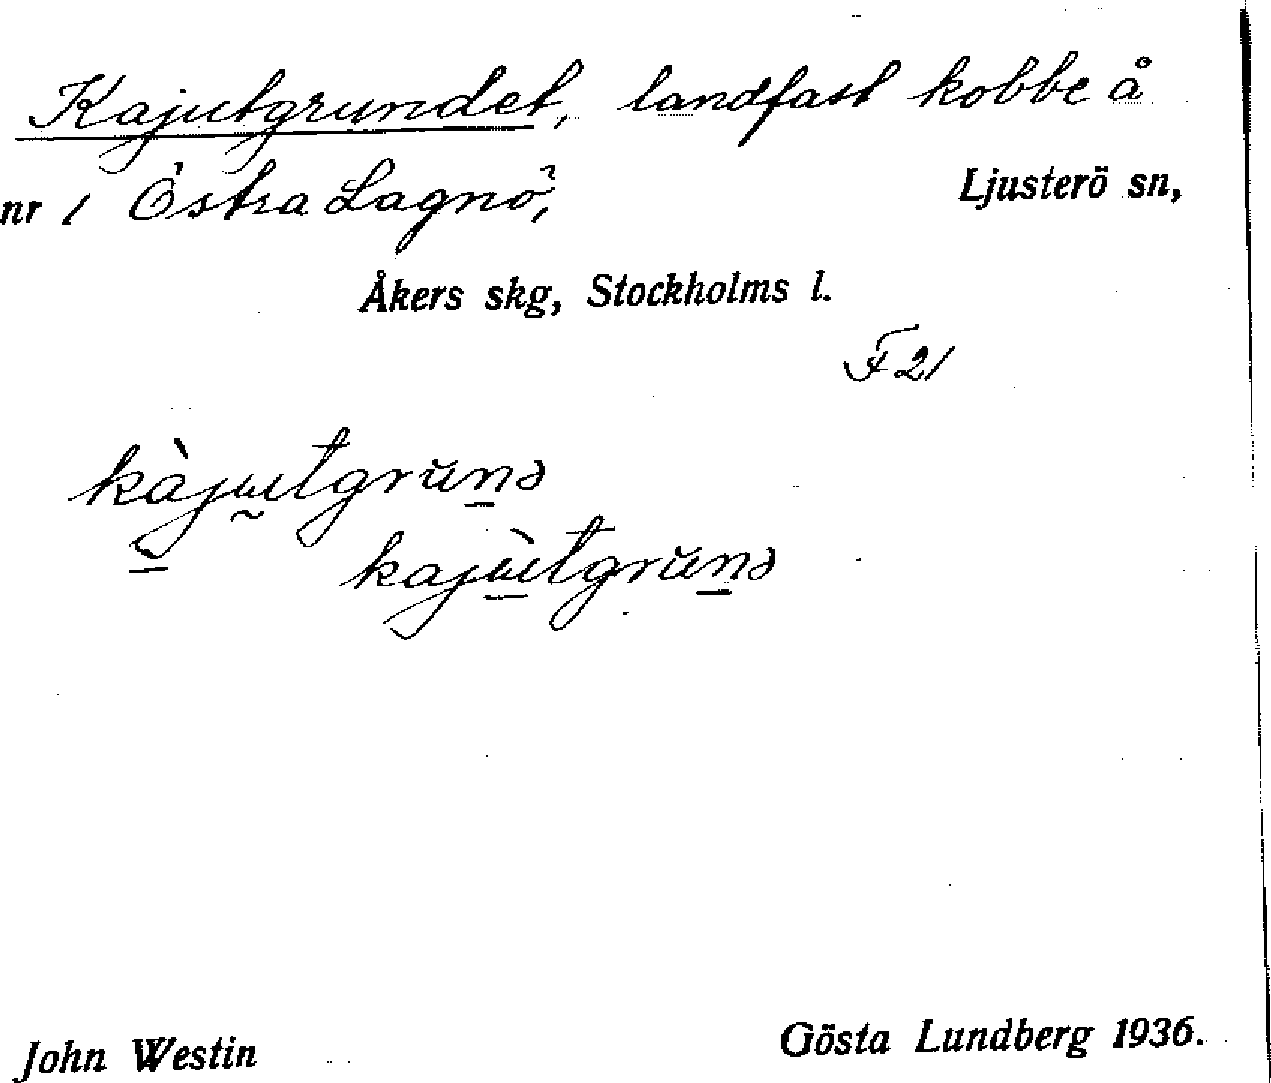 Kajutgrundet, landfast kobbe å
nr 1 Östra Lagnö, Ljusterö sn,
Åkers skg, Stockholms l.
F 21
kàjutgrŭnə
kajùtgrŭnə
John Westin Gösta Lundberg 1936.